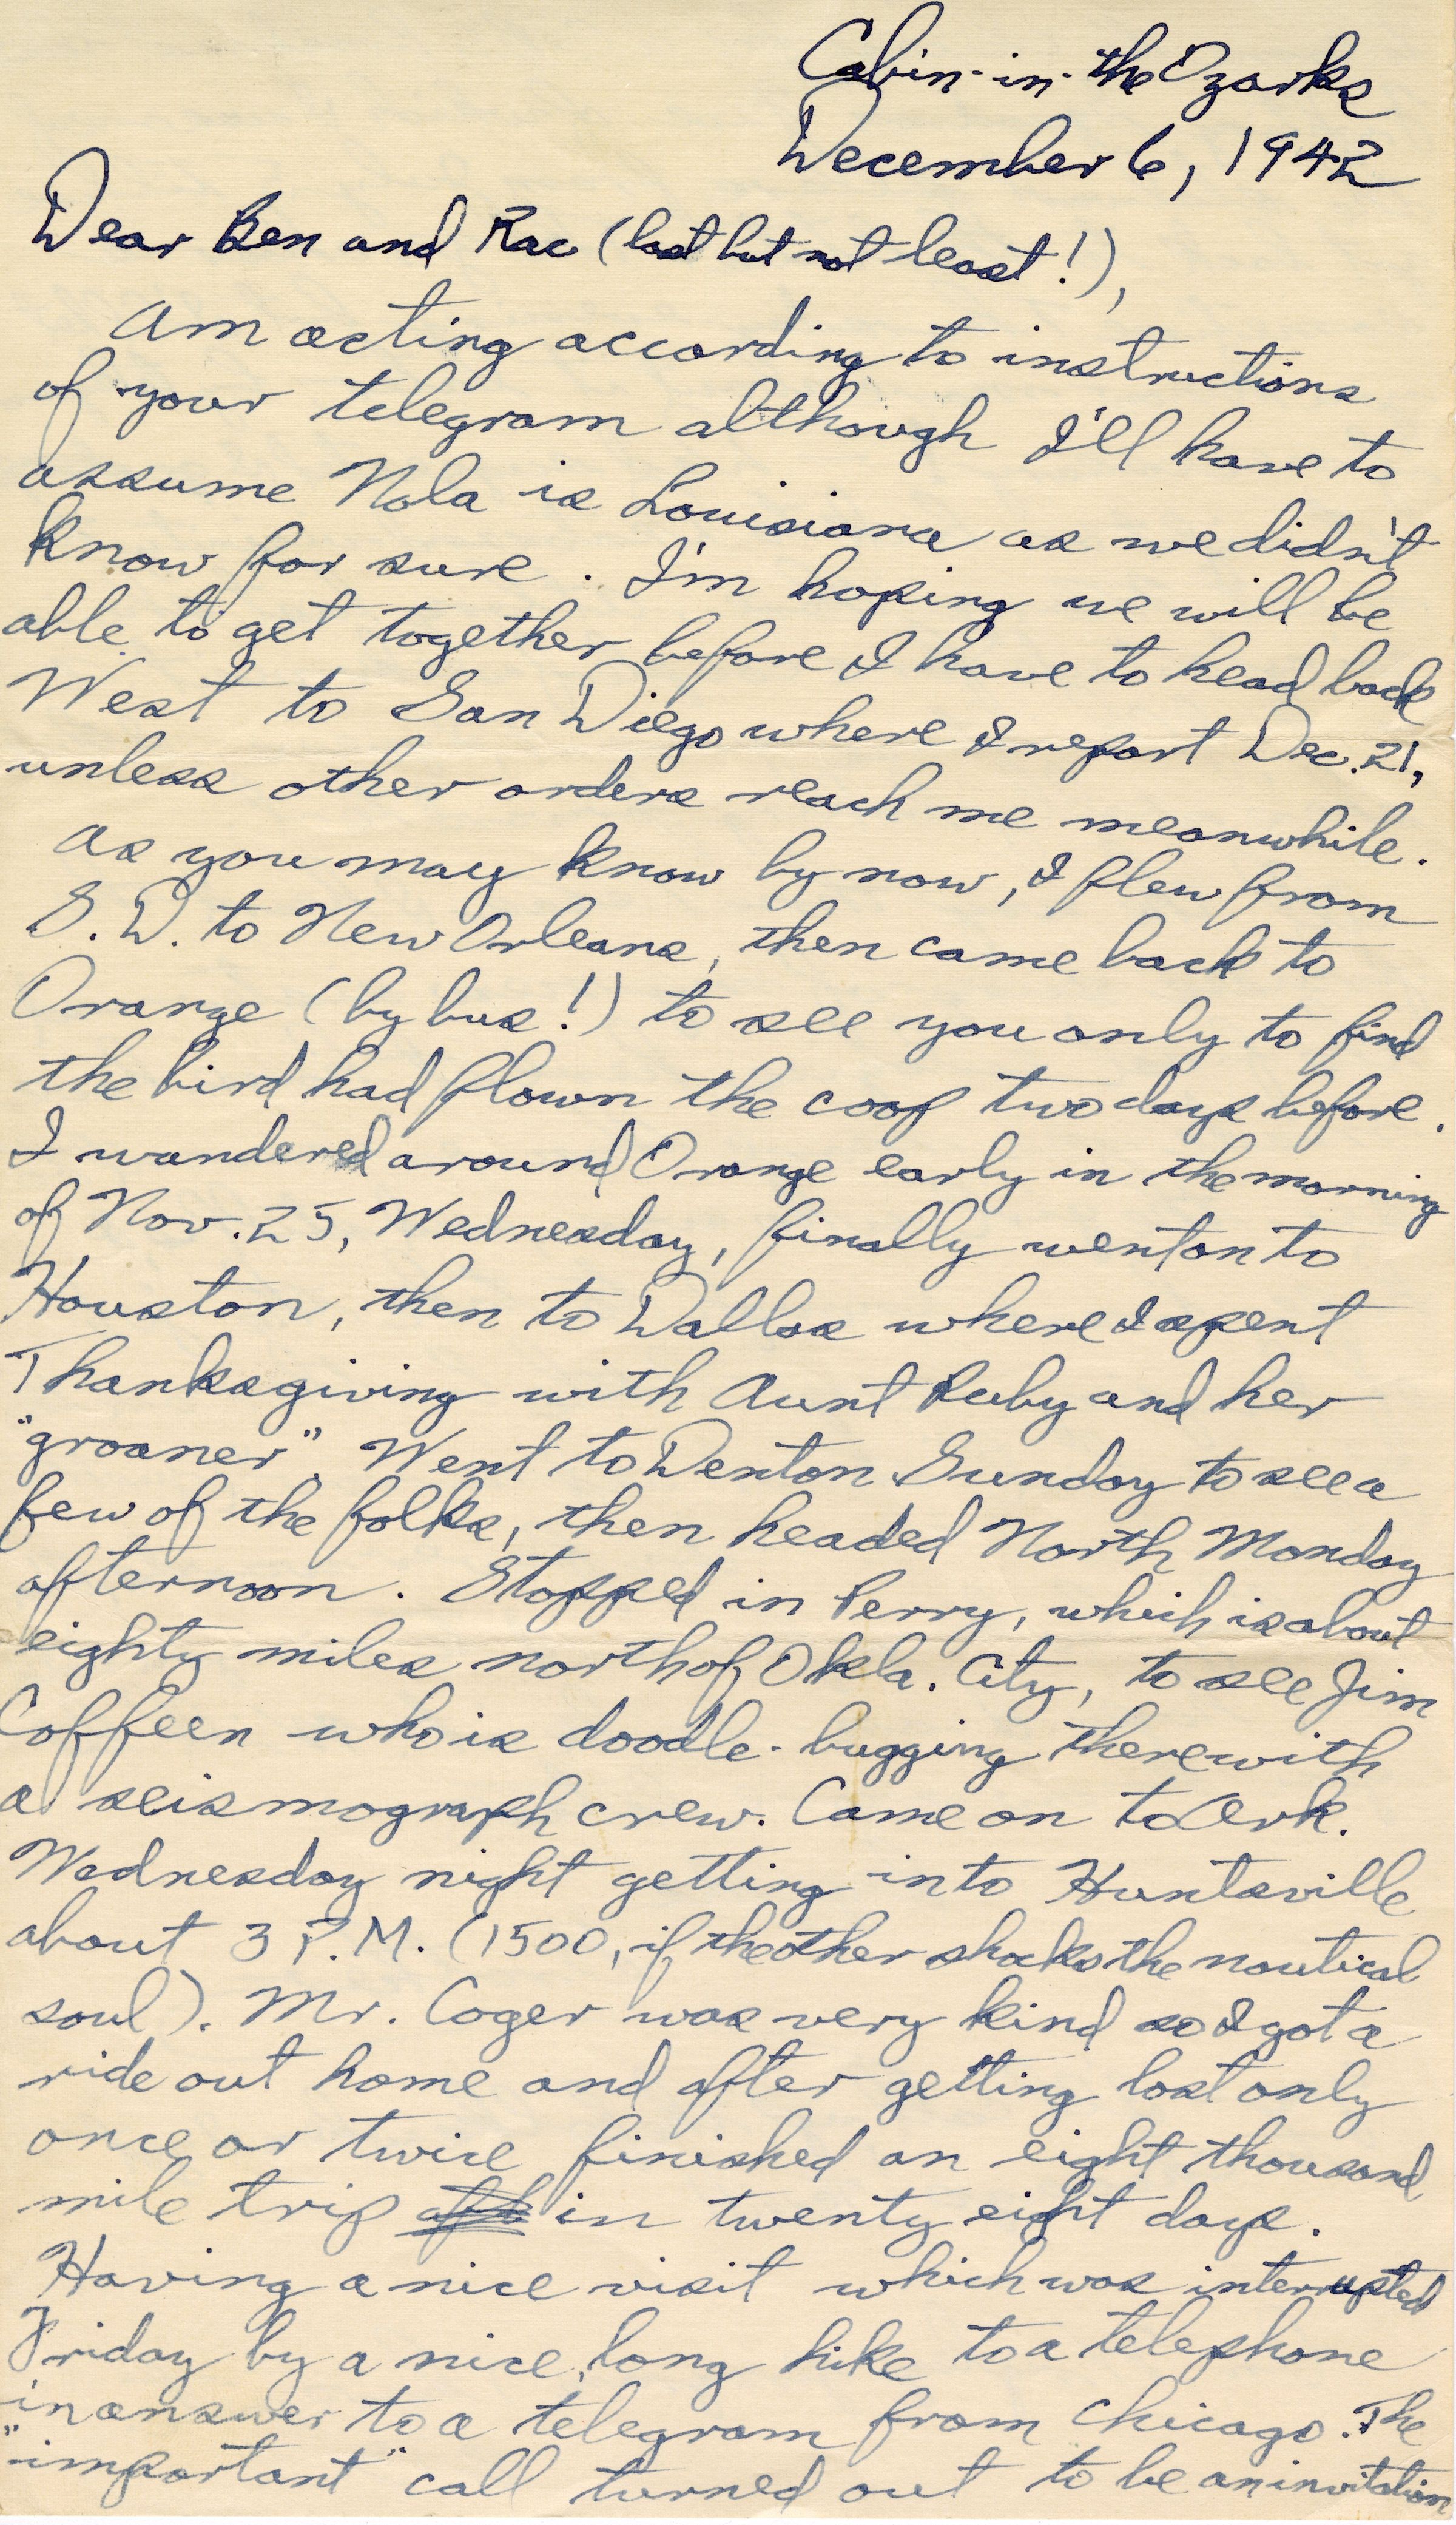 Cabin-in-the Ozarks
December 6, 1942
Dear Ben and Rae (last but not least!),
Am acting according to instructions
of your telegram although I'll have to
assume Nola is Louisiana as we didn't
know for sure. I'm hoping we will be
able to get together before I have to head back
West to San Diego where I report Dec. 21,
unless other orders reach me meanwhile.
As you may know by now, I flew from
S.D. to New Orleans, then came back to
Orange (by bus!) to see you only to find
the bird had flown the coop two days before.
I wandered around Orange early in the morning
of Nov. 25, Wednesday, finally went on to
Houston, then to Dallas where I spent
Thanksgiving with Aunt Ruby and her
"groaner". Went to Denton Sunday to see a
few of the folks, then headed North Monday
afternoon. Stopped in Perry, which is about
eighty miles north of Okla. City, to see Jim
Coffeen who is doodle-bugging there with
a seismograph crew. Came on to Ark.
Wednesday night getting into Huntsville
about 3 P.M. (1500, if the other shocks the nautical
soul). Mr. Coger was very kind so I got a
ride out home and after getting lost only
once or twice finished an eight thousand
mile trip in twenty eight days.
Having a nice visit which was interrupted
Friday by a nice, long hike to a telephone
in answer to a telegram from Chicago. The
"important" call turned out to be an invitation